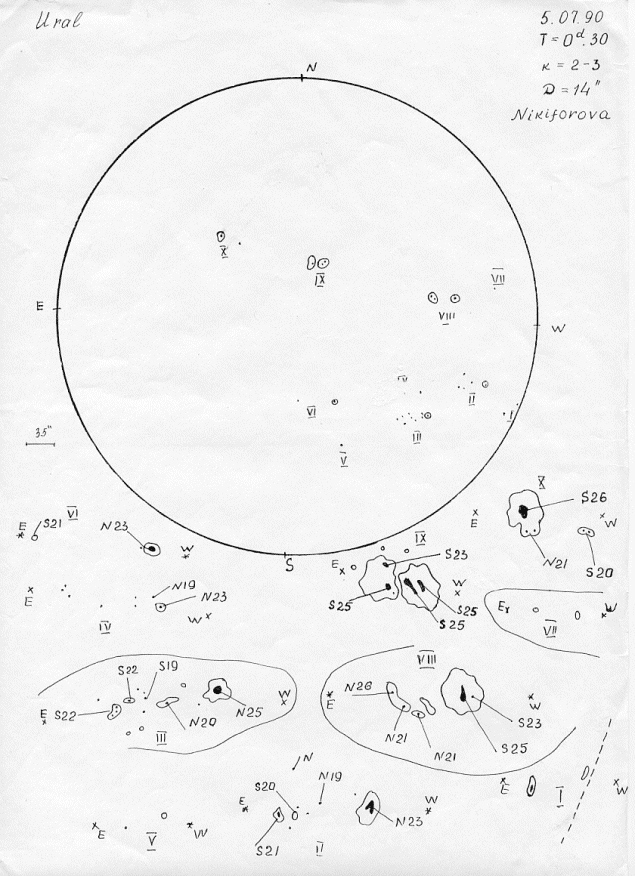 Ural
5.07.90
T = 0ᵈ.30
K = 2-3
D = 14"
Nikiforova
N
X
IX
VII
E
VIII
W
IV
II
VI
I
III
35"
V
S
X
S26
E
W
N21
S20
VI
E
S21
N23
W
IX
E
S23
W
S25
S25
S25
E
N19
N23
W
IV
E
W
VII
S22
S19
W
E
S22
N20
N25
III
VIII
N26
E
W
S23
N21
N21
S25
N
S20
N19
E
W
N23
S21
II
E
W
V
E
I
W